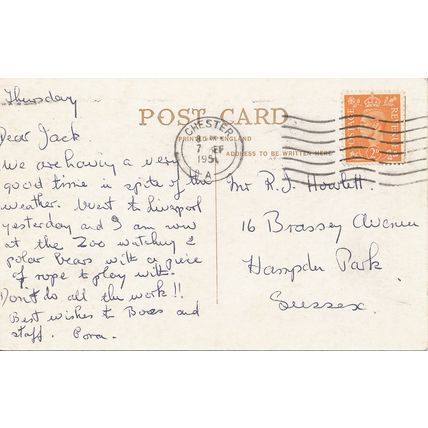 Thursday
POST CARD
PRINTED IN ENGLAND
ADDRESS TO BE WRITTEN HERE
CHESTER
7 SEP
195
A
POSTAGE REVENUE
2D
Dear Jack
We are having a very
good time in spite of the
weather. Went to Liverpool
yesterday and I am now
at the Zoo watching 2
polar bears with a piece
of rope to play with.
Don't do all the work!!
Best wishes to Boss and
staff.
Mr R. J. Howlett.
16 Brassey Avenue
Hampden Park
Sussex.